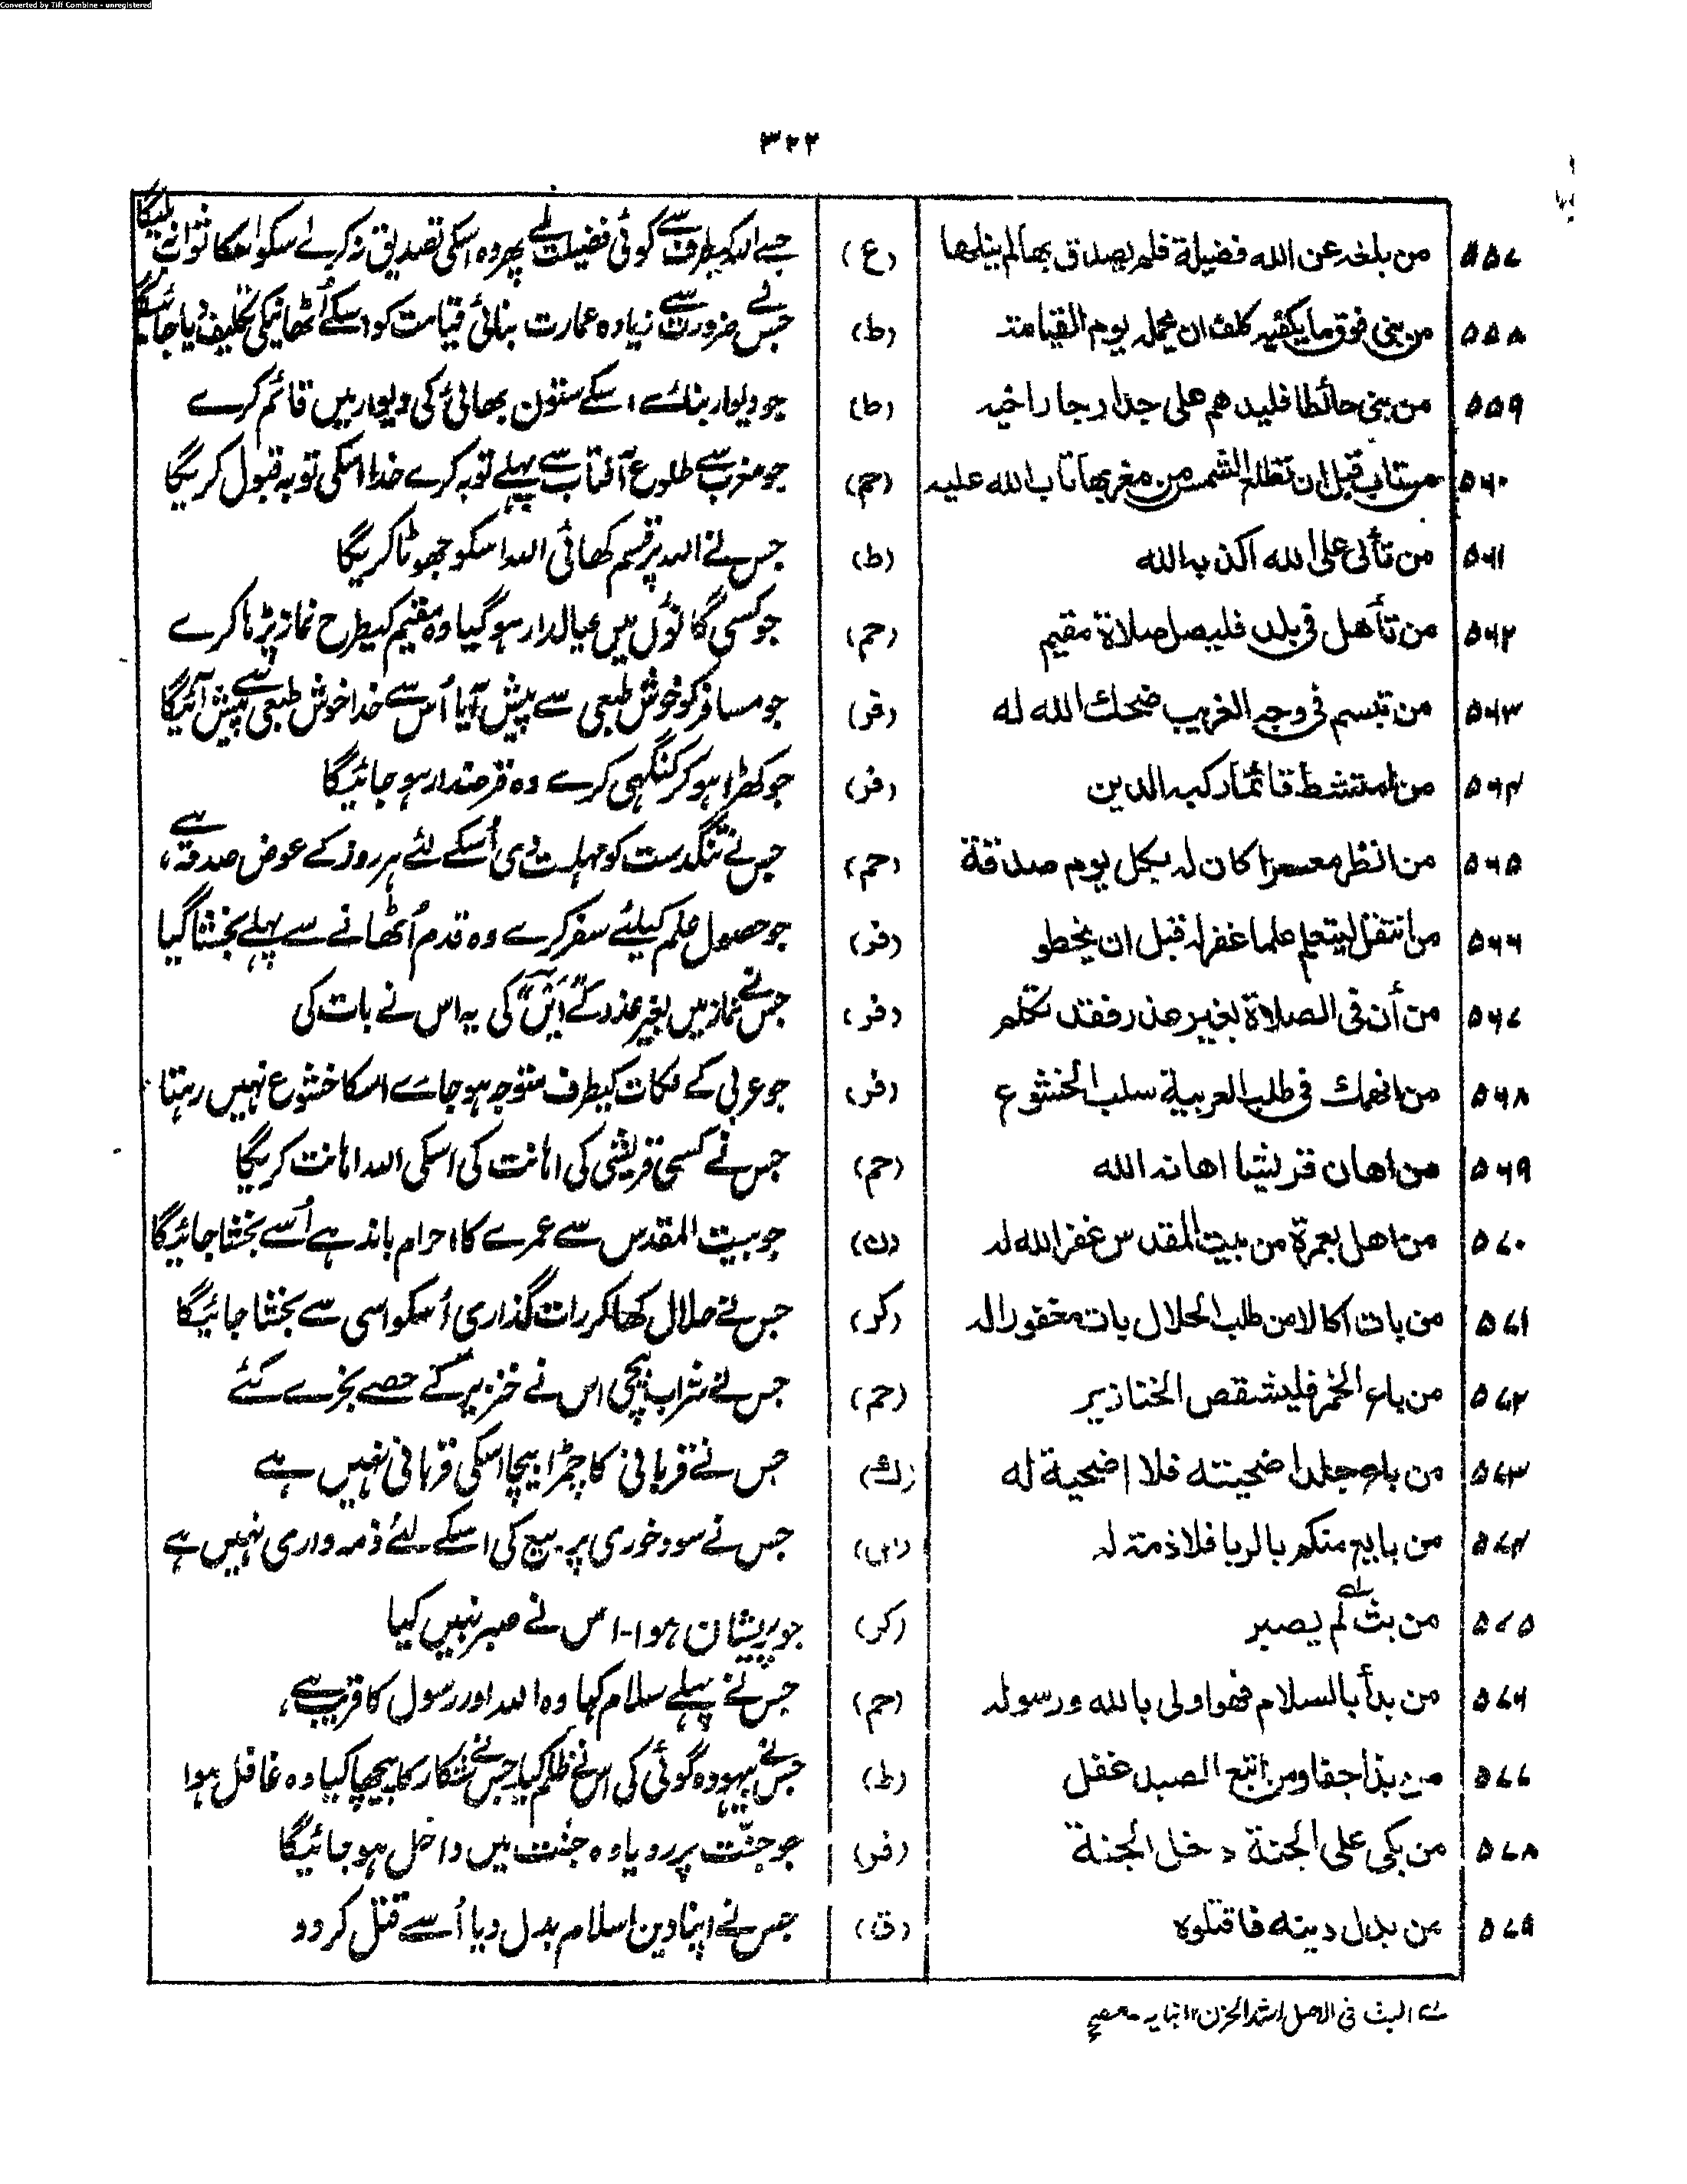 Converted by Tiff Combine - unregistered
۳۲۲
۵۵۷ من بلغه عن الله فضیلة فلم یصدق بها لم ینلها (ع) جسے اللہ کیطرف سے کوئی فضیلت ملے پھر وہ اسکی تصدیق نہ کرے اسکو اسکا ثواب نہ ملیگا
۵۵۸ من بنی فوق ما یکفیه کلف ان یحمله یوم القیامة (ط) جس نے ضرورت سے زیادہ عمارت بنائی قیامت کو اسکے اُٹھانیکی تکلیف دیا جائیگا
۵۵۹ من بنی حائطا فلیدعم علی جدار جار اخیه (ط) جو دیوار بنائے اسکے ستون بھائی کی دیوار میں قائم کرے
۵۶۰ من تاب قبل ان تطلع الشمس من مغربها تاب الله علیه (حم) جو مغرب سے طلوع آفتاب سے پہلے توبہ کرے خدا اسکی توبہ قبول کریگا
۵۶۱ من تألی علی الله اکذبه الله (ط) جس نے اللہ پر قسم کھائی اللہ اسکو جھوٹا کریگا
۵۶۲ من تأهل فی بلد فلیصل صلاة مقیم (حم) جو کسی گانوٗں میں عیالدار ہو گیا وہ مقیم کیطرح نماز پڑہا کرے
۵۶۳ من تبسم فی وجه الغریب ضحك الله له (فر) جو مسافر کو خوش طبعی سے پیش آیا اُس سے خدا خوش طبعی سے پیش آئیگا
۵۶۴ من امتشط قائما رکبه الدین (فر) جو کھڑا ہو کر کنگھی کرے وہ قرضدار ہو جائیگا
۵۶۵ من انظر معسرا کان له بکل یوم صدقة (حم) جس نے تنگدست کو مہلت دی اُسکے لئے ہر روز کے عوض صدقہ ہے،
۵۶۶ من انتقل لیتعلم علما غفر له قبل ان یخطو (فر) جو حصول علم کیلئے سفر کرے وہ قدم اُٹھانے سے پہلے بخشا گیا
۵۶۷ من أن فی الصلاة بغیر عذر فقد تکلم (فر) جس نے نماز میں بغیر عذر کے "ایں" کی یہ اس نے بات کی
۵۶۸ من انهمك فی طلب العربیة سلب الخشوع (فر) جو عربی کے نکات کیطرف متوجہ ہو جائے اسکا خشوع نہیں رہتا
۵۶۹ من اهان قریشا اهانه الله (حم) جس نے کسی قریشی کی اہانت کی اسکی اللہ اہانت کریگا
۵۷۰ من اهل بعمرة من بیت المقدس غفر الله له (ن) جو بیت المقدس سے عمرے کا احرام باندہے اُسے بخشا جائیگا
۵۷۱ من بات اکالا من طلب الحلال بات مغفورا له (کر) جس نے حلال کھا کر رات گذاری اُسکو اسی سے بخشا جائیگا
۵۷۲ من باع الخمر فلیشقص الخنازیر (حم) جس نے شراب بیچی اس نے خنزیر کے حصے بخرے کئے
۵۷۳ من باع جلد اضحیته فلا اضحیة له (ك) جس نے قربانی کا چمڑا بیچا اسکی قربانی نہیں ہے
۵۷۴ من بایع منکم بالربا فلا ذمة له جس نے سود خوری پر بیع کی اسکے لئے ذمہ واری نہیں ہے
۵۷۵ من بث لم یصبر (کر) جو پریشان ہوا۔ اس نے صبر نہیں کیا
۵۷۶ من بدأ بالسلام فهو اولی بالله ورسوله (حم) جس نے پہلے سلام کہا وہ اللہ اور رسول کا قریب ہے،
۵۷۷ من بذا جفا ومن اتبع الصید غفل (ط) جس نے بیہودہ گوئی کی اس نے ظلم کیا جس نے شکار کا پیچھا کیا وہ غافل ہوا
۵۷۸ من بکی علی الجنة دخل الجنة (فر) جو جنّت پر رویا وہ جنت میں داخل ہو جائیگا
۵۷۹ من بدل دینه فاقتلوه (ق) جس نے اپنا دین اسلام بدل دیا اُسے قتل کر دو
لے البث فی الاصل اشد الحزن ۱۲ نہایہ مصحح